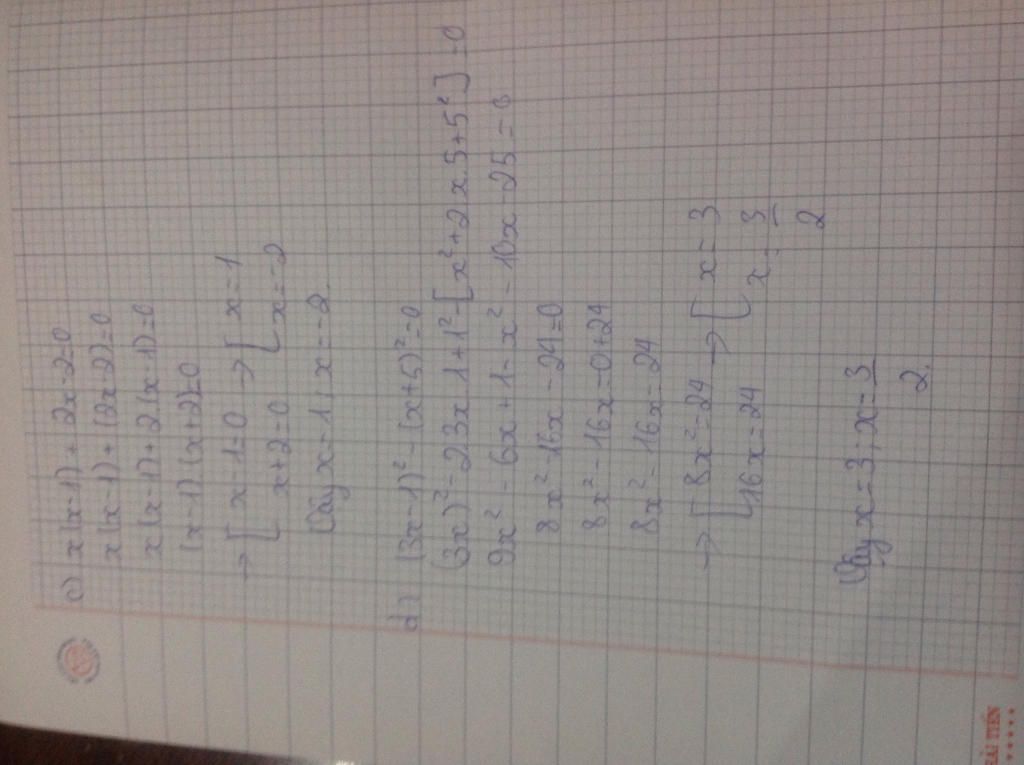 c) x(x-1) + 2x-2=0
x(x-1)+(2x-2)=0
x(x-1)+2.(x-1)=0
(x-1).(x+2)=0
→ [ x-1=0 → [ x=1
x+2=0 x=-2
Vậy x=1; x=-2.
d) (3x-1)² - (x+5)²=0
(3x)²-2.3x.1+1²-[x²+2.x.5+5²]=0
9x²-6x+1-x²-10x-25=0
8x²-16x-24=0
8x²-16x=0+24
8x²-16x=24
→ [ 8x²=24 → [ x=3
16x=24 x=3/2
Vậy x=3; x=3/2.
HẢI TIẾN